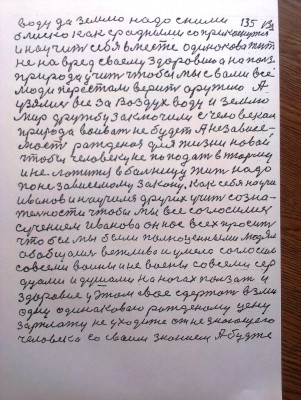 воду да землю надо с ними 135
близко как с родними соприкоснутся
и научит себя вместе одиноково жит
не на вред своему здоровию а на ползу
природа учит чтобы мы с вами все
люди перестали верит оружию А
узялис все за воздух воду и землю
мир дружбу заключили с человеком
природа воеват не будет А независи-
мост рожденая для жизни новой
чтобы человеку не попадат в тюрму
и не ложится в балницу жит надо
по независемому закону. как себя научил
Иванов и научился других учит созна-
телности чтобы мы все согласилис
с учением Иванова он нос всех просит
что бы мы были полноценными людями
обобщалис вежливо и умело согласно
со всеми воины и не военые со всеми сер
дцами и душами на ногах ползат и
здоровие у этом свое сдержат взяли
одну одинаковаю рожденому цену
зарплату не уходите от незнающего
человека со своим знанием А будте